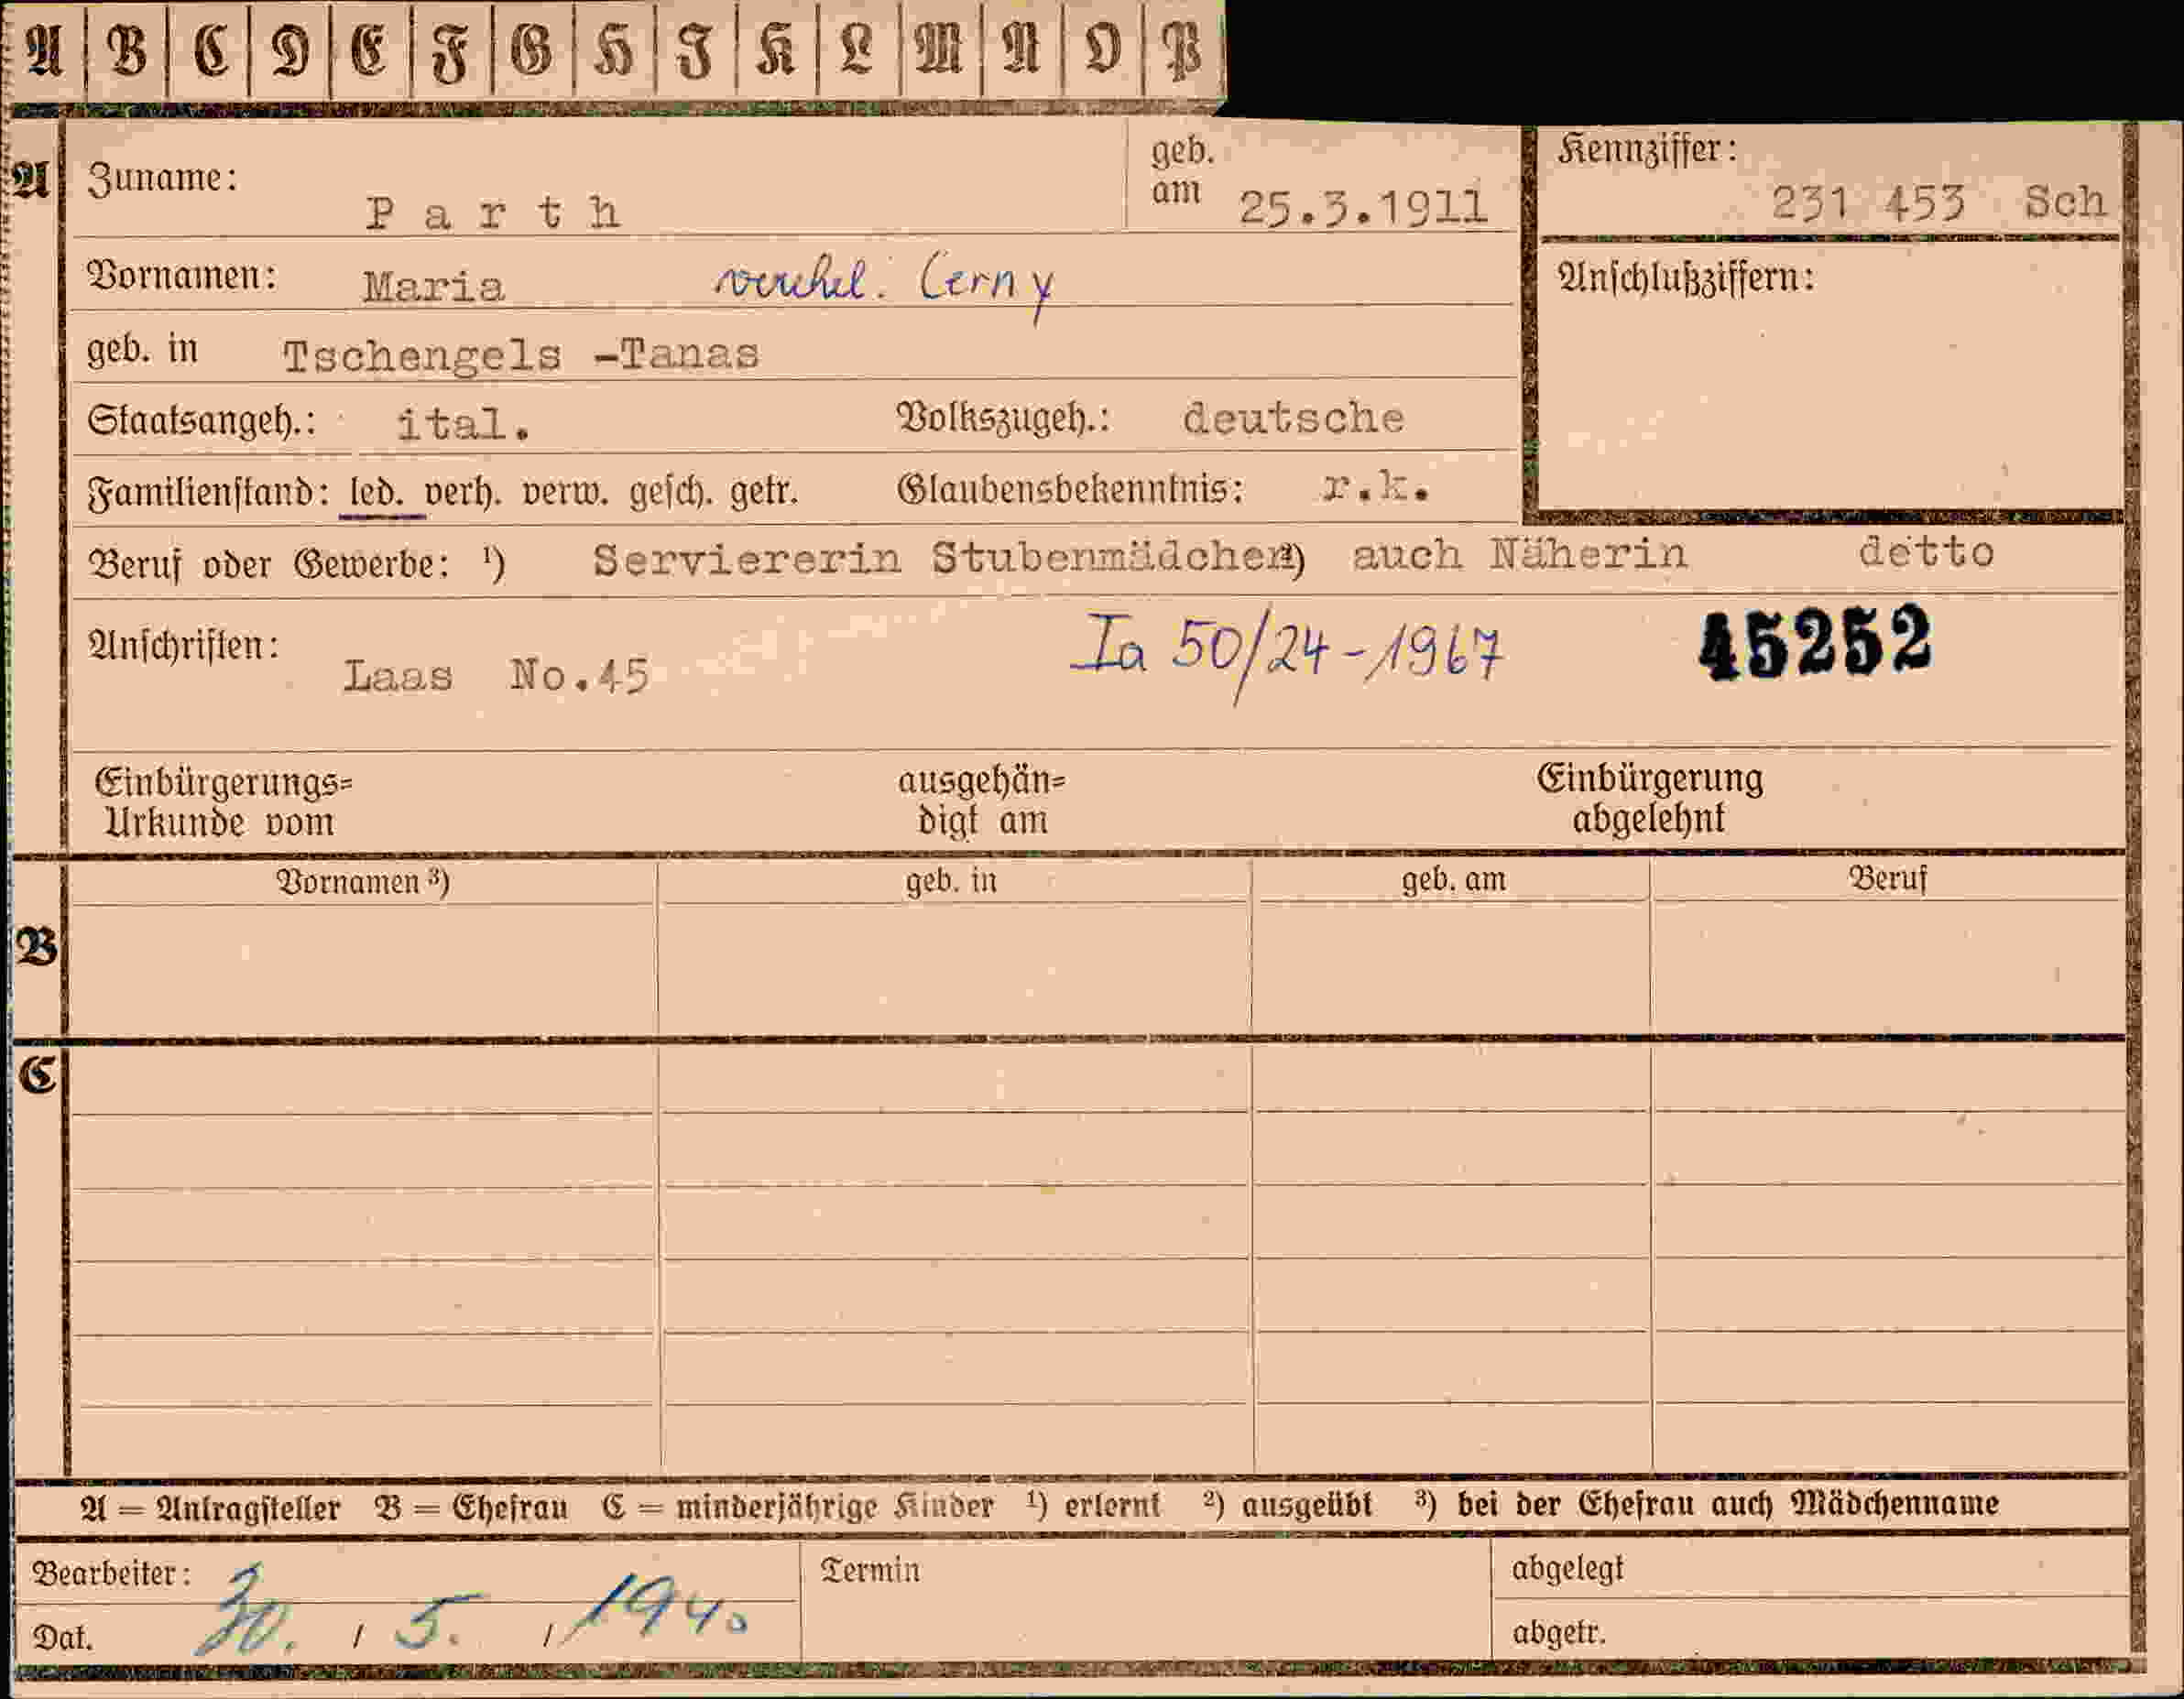 A B C D E F G H I K L M N O P
A Zuname: Parth geb. am 25.3.1911 Kennziffer: 231 453 Sch
Vornamen: Maria verehel. Cerny Anschlußziffern:
geb. in Tschengels -Tanas
Staatsangeh.: ital. Volkszugeh.: deutsche
Familienstand: led. verh. verw. gesch. getr. Glaubensbekenntnis: r.k.
Beruf oder Gewerbe: ¹) Serviererin Stubenmädchen ²) auch Näherin detto
Anschriften: Laas No.45 Ia 50/24-1967 45252
Einbürgerungs= ausgehän= Einbürgerung
Urkunde vom digt am abgelehnt
Vornamen ³) geb. in geb. am Beruf
B
C
A = Antragsteller B = Ehefrau C = minderjährige Kinder ¹) erlernt ²) ausgeübt ³) bei der Ehefrau auch Mädchenname
Bearbeiter: Termin abgelegt
Dat. 30. / 5. / 1940 abgetr.